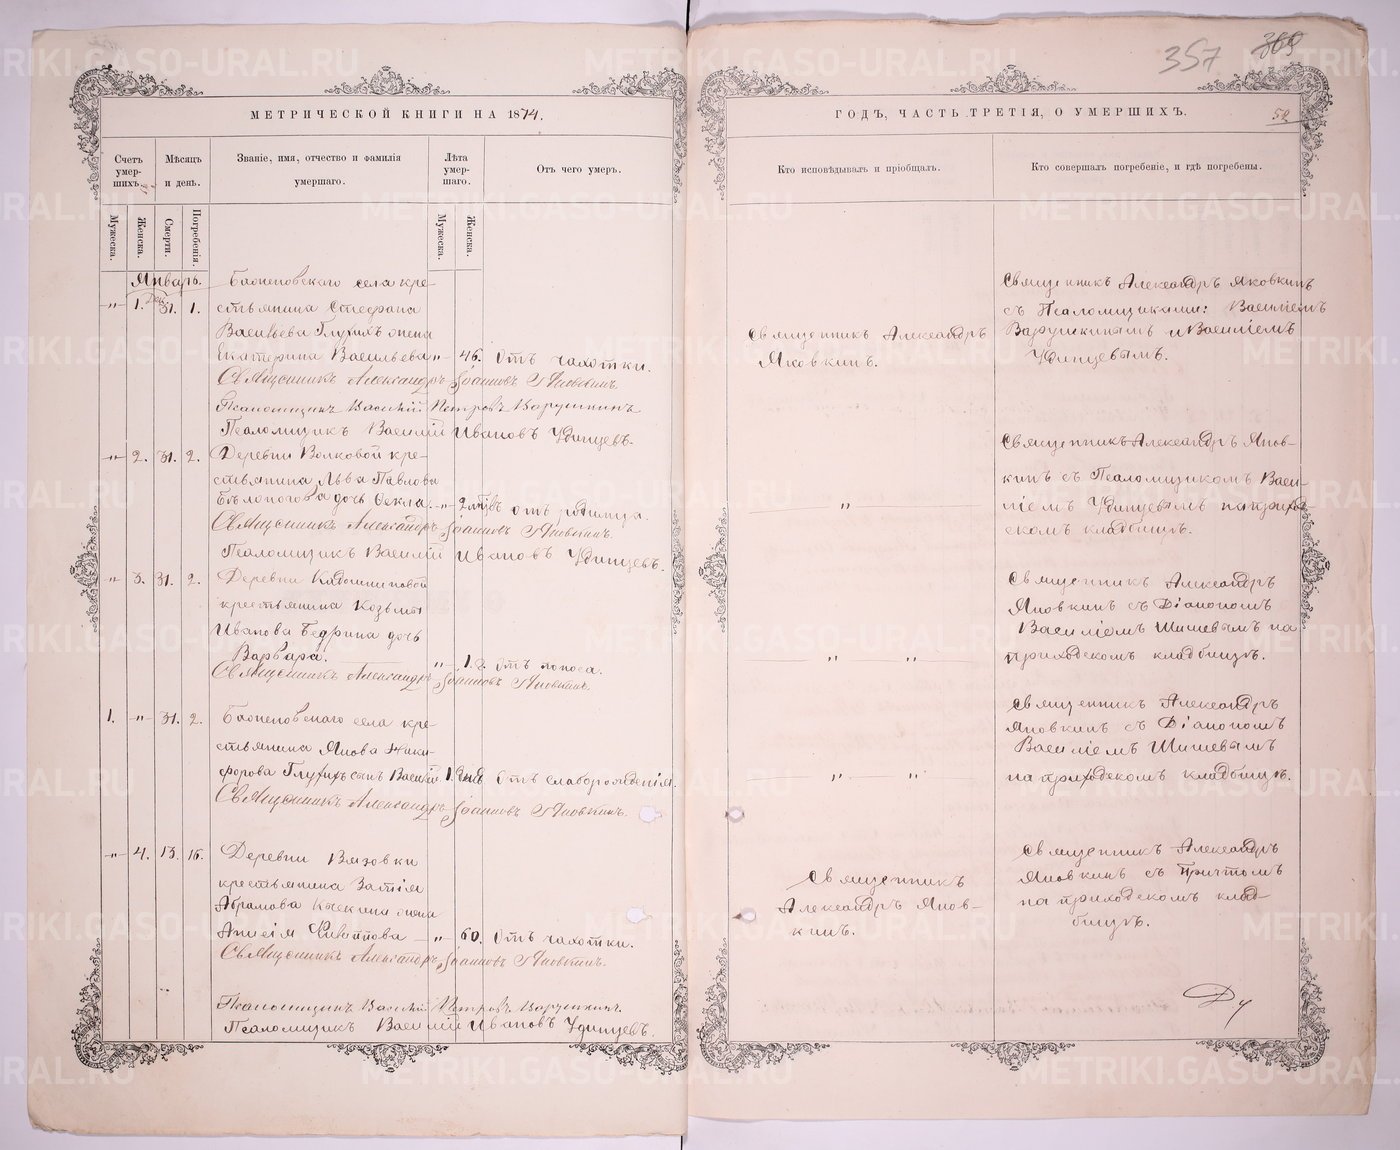 357 369
МЕТРИЧЕСКОЙ КНИГИ НА 1874.
ГОДЪ, ЧАСТЬ ТРЕТІЯ, О УМЕРШИХЪ.
52
Счетъ умер-шихъ.
Мѣсяцъ и день.
Званіе, имя, отчество и фамилія умершаго.
Лѣта умер-шаго.
Отъ чего умеръ.
Кто исповѣдывалъ и пріобщалъ.
Кто совершалъ погребеніе, и гдѣ погребены.
Мужеска.
Женска.
Смерти.
Погребенія.
Мужеска.
Женска.
Январь.
села кре-
„ 1. Дек. 31. 1. стьянина Стефана
Васильева Глухихъ жена
Екатерина Васильева „ 46. Отъ чахотки.
Священникъ Александръ Іоанновъ Яновкинъ.
Псаломщикъ Василій Петровъ Варушкинъ
Псаломщикъ Василій Ивановъ Удинцевъ.
Священникъ Александръ
Яновкинъ.
Священникъ Александръ Яновкинъ
съ Псаломщиками: Василіемъ
Варушкинымъ и Василіемъ
Удинцевымъ.
„ 2. 31. 2. Деревни Волковой кре-
стьянина Льва Павлова
Бѣлоногова дочь Фекла. „ 2 отъ родимца.
Священникъ Александръ Іоанновъ Яновкинъ.
Псаломщикъ Василій Ивановъ Удинцевъ.
„
Священникъ Александръ Янов-
кинъ съ Псаломщикомъ Васи-
ліемъ Удинцевымъ на приход-
скомъ кладбищѣ.
„ 3. 31. 2. Деревни
крестьянина Козьмы
Иванова Бедрина дочь
Варвара. „ 1. г. отъ поноса.
Священникъ Александръ Іоанновъ Яновкинъ.
„ „
Священникъ Александръ
Яновкинъ съ Діакономъ
Василіемъ Шишевымъ на
приходскомъ кладбищѣ.
1. „ 31. 2. села кре-
стьянина Якова Ники-
форова Глухихъ сынъ Василій. 1. отъ слаборожденія.
Священникъ Александръ Іоанновъ Яновкинъ.
„ „
Священникъ Александръ
Яновкинъ съ Діакономъ
Василіемъ Шишевымъ
на приходскомъ кладбищѣ.
„ 4. 13. 16. Деревни Вязовки
крестьянина
Абрамова жена
„ 60. Отъ чахотки.
Священникъ Александръ Іоанновъ Яновкинъ.
Псаломщикъ Василій Петровъ Варушкинъ.
Псаломщикъ Василій Ивановъ Удинцевъ.
Священникъ
Александръ Янов-
кинъ.
Священникъ Александръ
Яновкинъ съ Причтомъ
на приходскомъ клад-
бищѣ.
METRIKI.GASO-URAL.RU